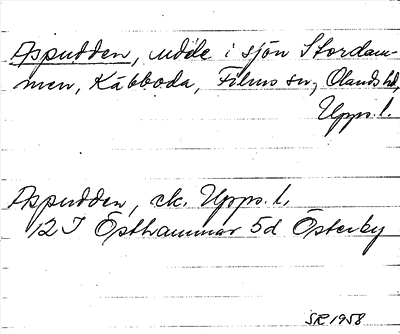 Aspudden, udde i sjön Stordam-
men, Kåbboda, Films sn, Olands hd,
Upps. l.
Aspudden, ek. Upps. l.
12 I Östhammar 5d Österby
SR 1958